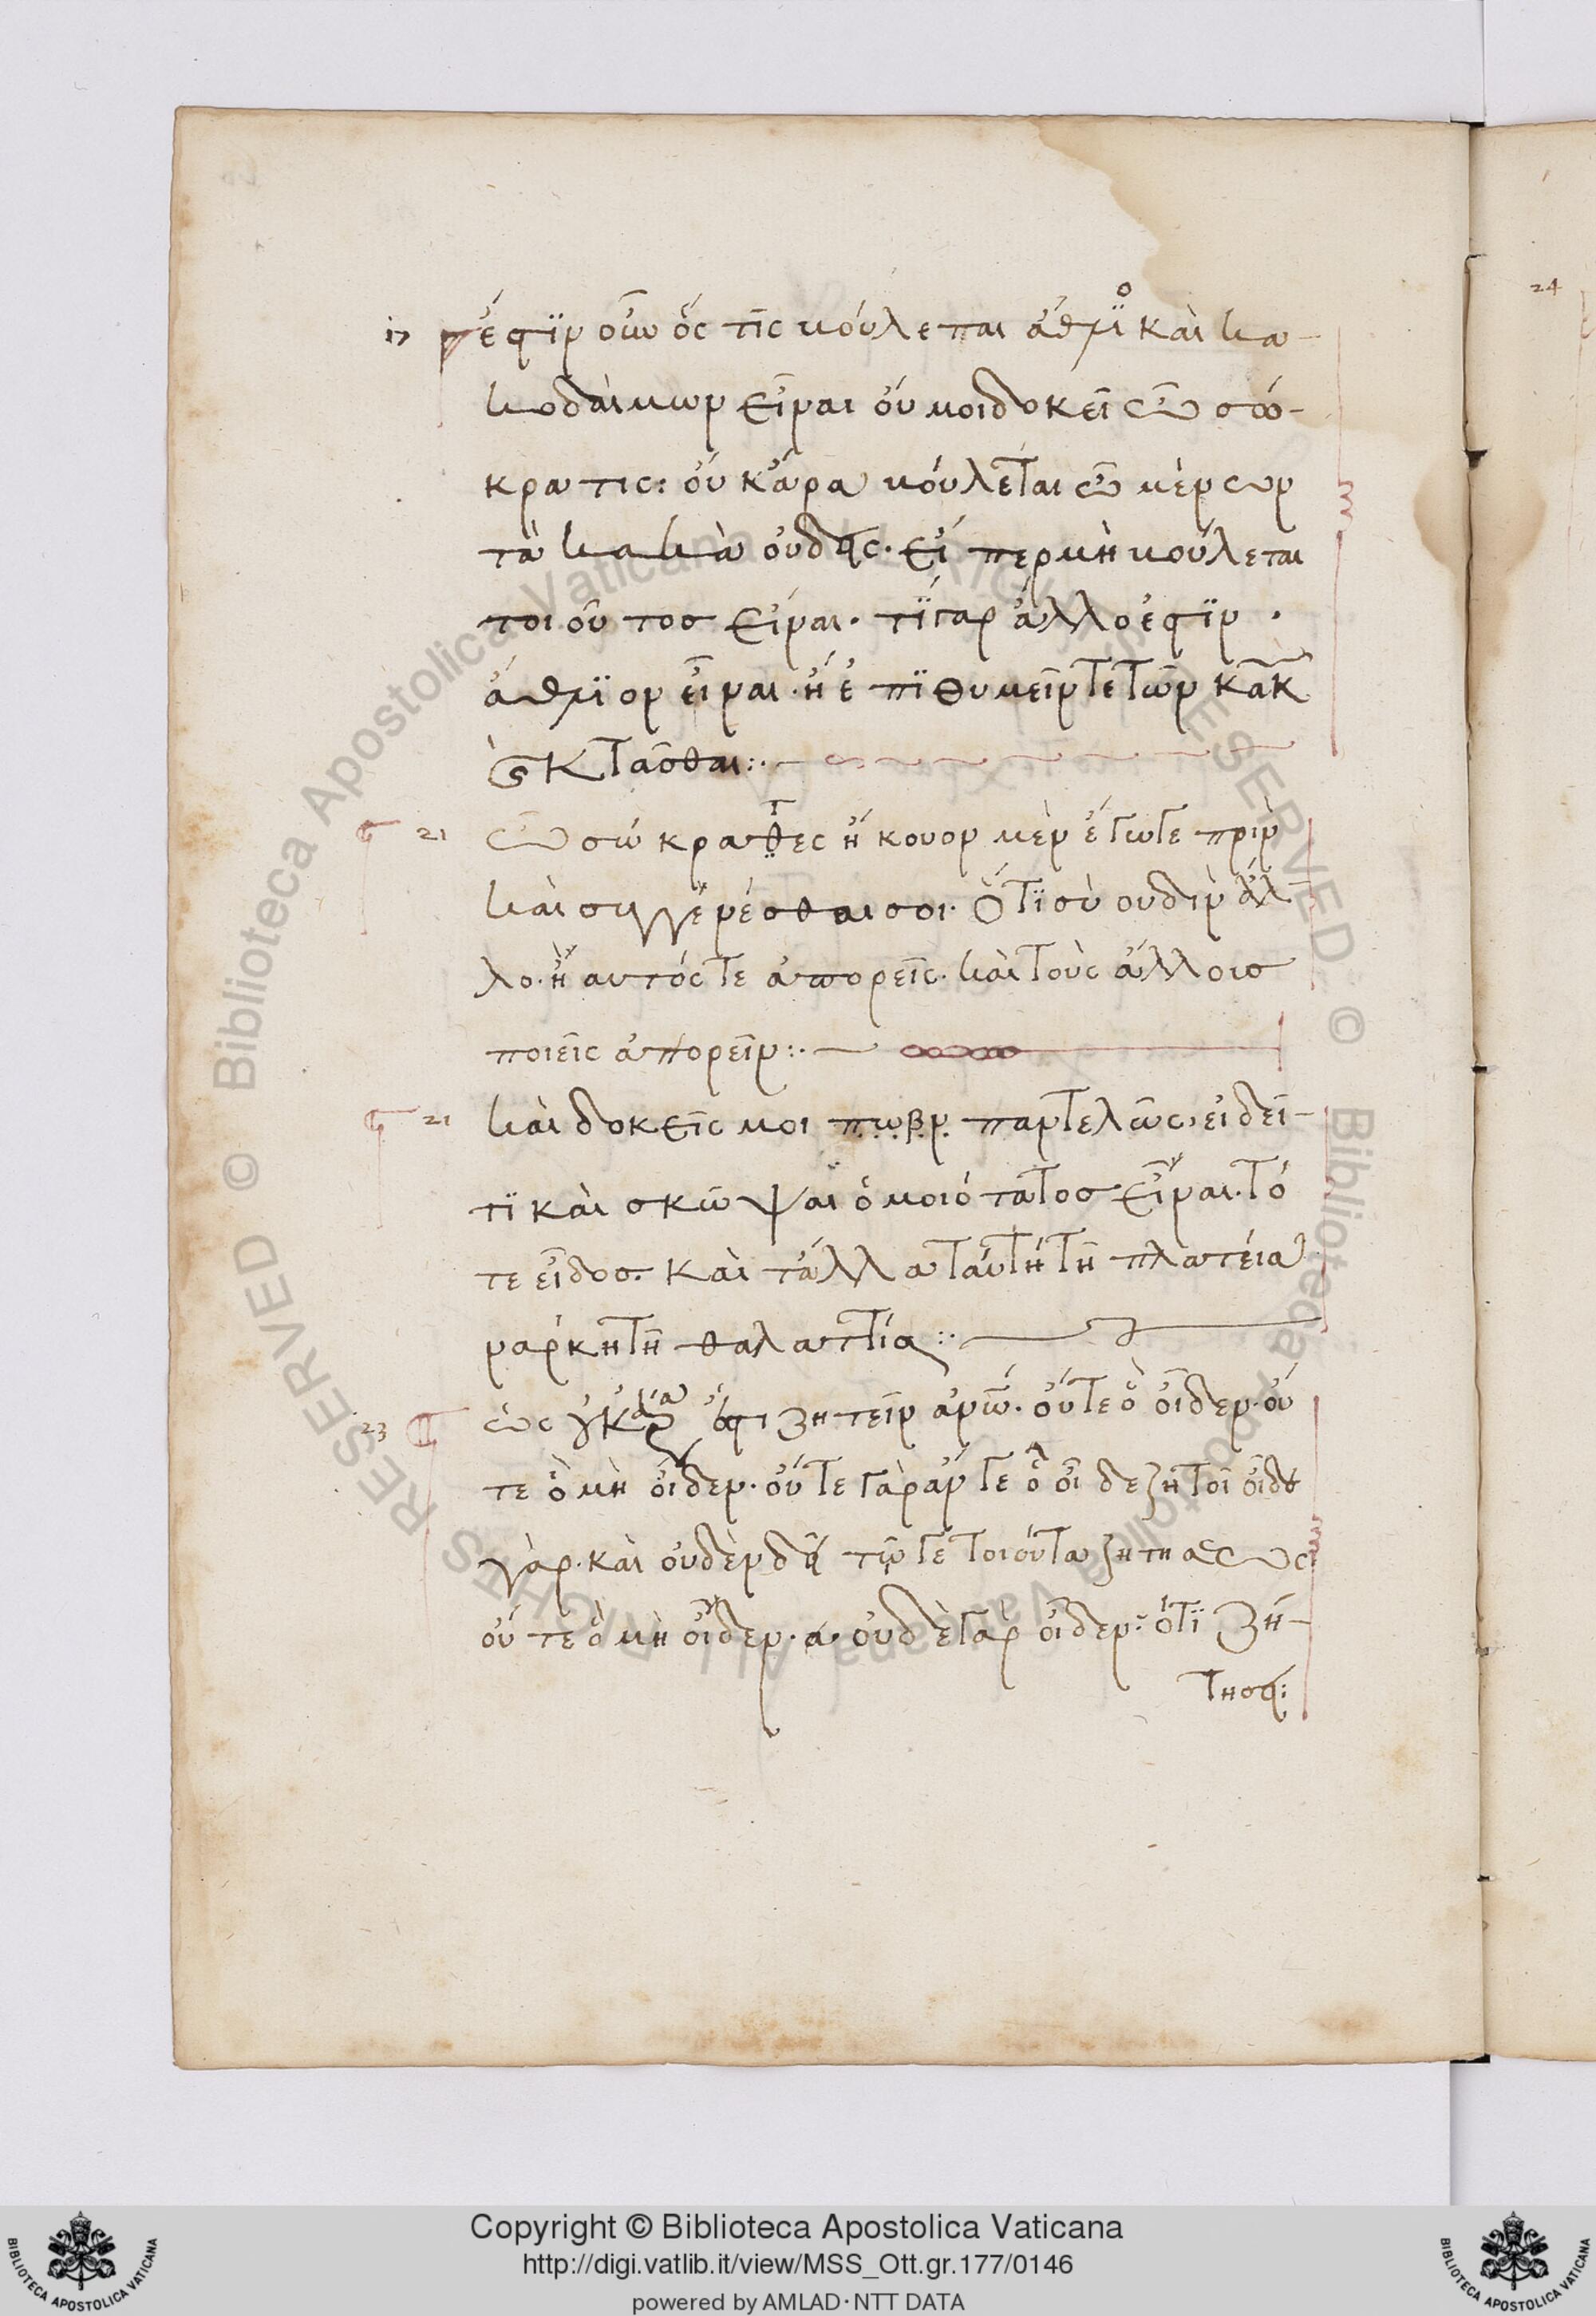 17 ἔστϊν οὖν ὅς τῖς βούλεται ἄθλϊο καὶ κα-
κοδαίμων εἶναι οὔ μοι δοκεῖ ὦ σώ-
κρατις: οὐκ ἄρα βούλεται ὦ μένων
τὰ κακὰ οὐδεὶς. εἴ περ μὴ βούλεται
τοιοῦτος εἶναι. τΐ γαρ ἄλλο ἐστϊν.
ἄθλϊον εἶναι. ἢ ἐπϊθυμεῖν τε τῶν κακ
καὶ κτᾶσθαι:·
21 Ὦ σώκρατες ἤκουον μὲν ἔγωγε πρὶν
καὶ συγγενέσθαι σοι. ὅτϊ σὺ ουδὲν ἄλ
λο. ἢ αυτός τε ἀπορεῖς. καὶ τοὺς ἄλλοισ
ποιεῖς ἀπορεῖν:·
21 καὶ δοκεῖς μοι πωβν παντελῶς, εἰ δεῖ-
τϊ καὶ σκῶψαι ὁμοιότατοσ εἶναι. τό
τε εἶδοσ. καὶ τἄλλα ταύτῃ τῇ πλατείᾳ
νάρκῃ τῇ θαλαττίᾳ:·
23 ὡς οὐκ ἄρα ἔστι ζητεῖν ἀνῶ. οὔτε ὃ οἶδεν. οὔ
τε ὃ μὴ οἶδεν. οὔτε γὰρ ἄν γε ὃ οἶδε ζητοῖ οἶδε
γὰρ. καὶ οὐδὲν δεῖ τῷ γε τοιούτῳ ζητήσεως
οὔτε ὃ μὴ οἶδεν. οὐδὲ γὰρ οἶδεν: ὅτϊ ζή-
τησει:
24
Copyright © Biblioteca Apostolica Vaticana
http://digi.vatlib.it/view/MSS_Ott.gr.177/0146
powered by AMLAD·NTT DATA